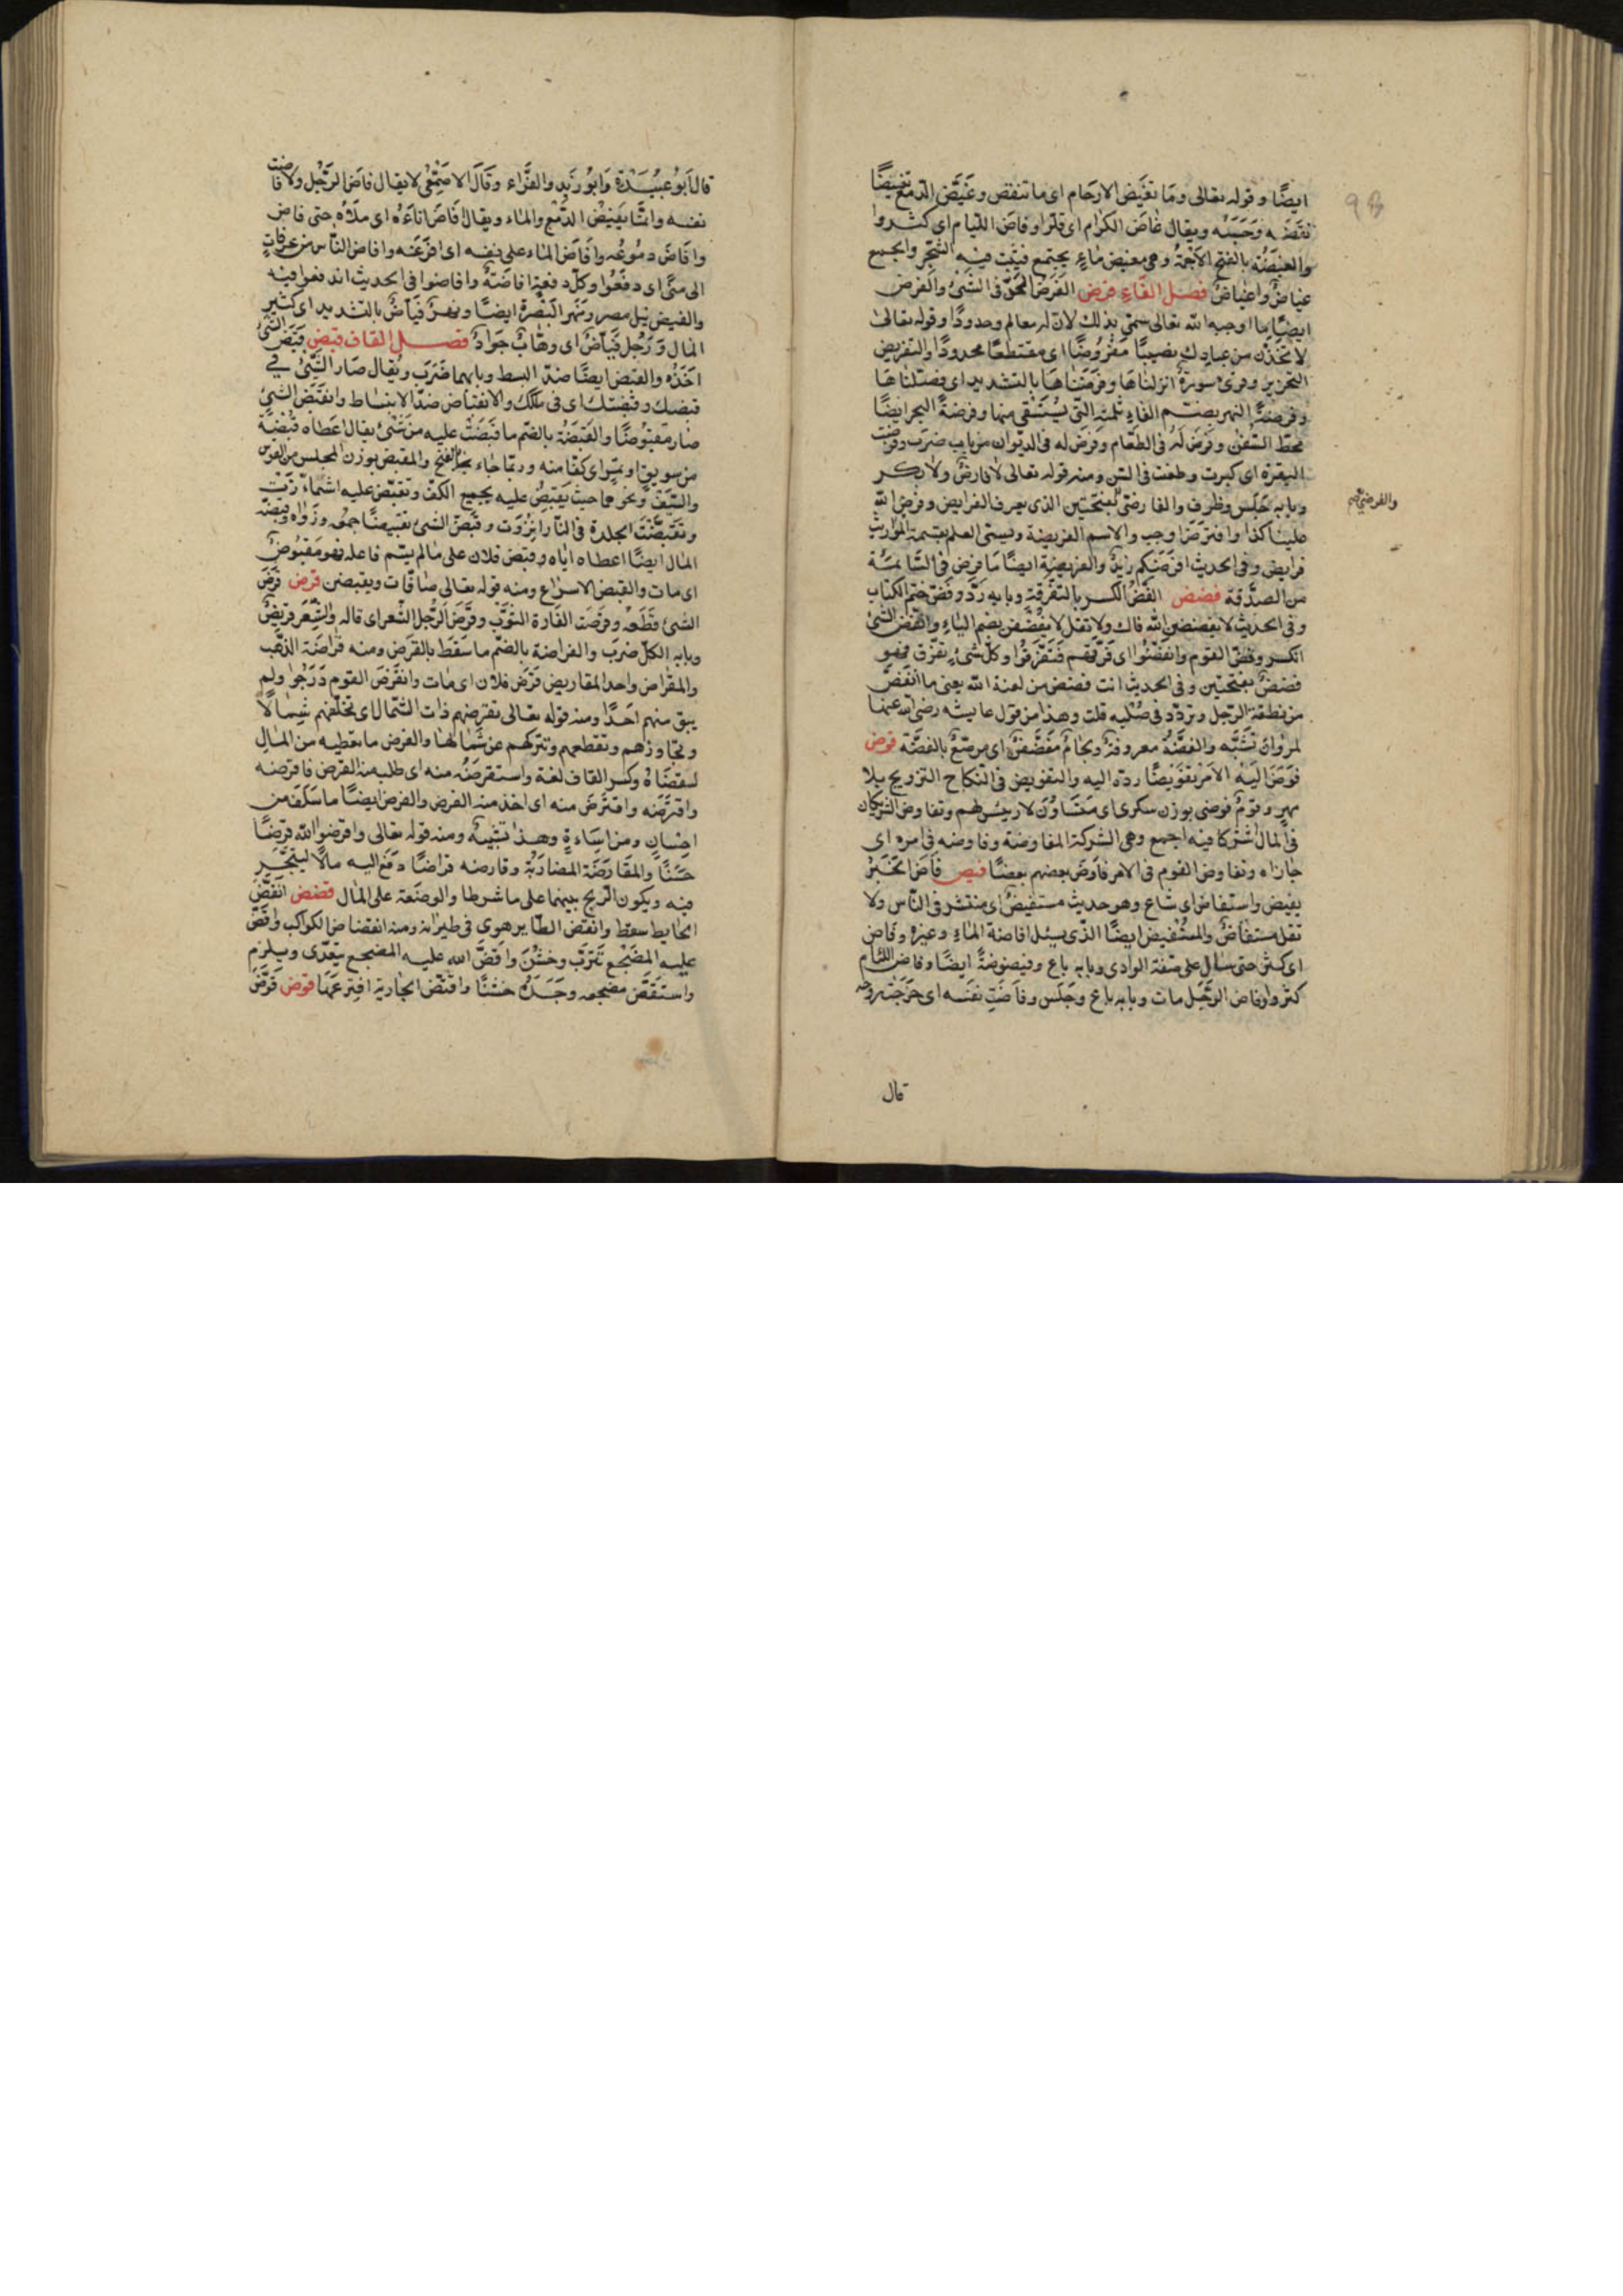 ايضًا وقوله تعالى وما تغيض الارحام اى ما تنقص وغيّض الدّمع تغييضًا
نقصه وحبسه ويقال غاض الكرام اى قلّوا وفاض اللّيام اى كثروا
والغيضة بالفتح الاجمة وهى مغيض ماءٍ يجتمع فينبت فيه الشّجر والجمع
غياض واغياض فصل الفاء فرض الفرض الحزّ فى الشّئ والفرض
ايضًا ما اوجبه الله تعالى سمّى بذلك لانّ له معالم وحدودًا وقوله تعالى
لاتّخذنّ من عبادك نصيبًا مفروضًا اى مقتطعًا محدودًا والتفريض
التحزيز وقرئ سورة انزلناها وفرّضناها بالتشديد اى فصّلناها
وفرضة النهر بضمّ الفاء ثلمته الّتى يستقى منها وفرضة البحر ايضًا
محطّ السّفن وفرض له فى العطاء وفرض له فى الديوان من باب ضرب وفرضت
البقرة اى كبرت وطعنت فى السّن ومنه قوله تعالى لا فارض ولا بكر
وبابه جلس وظرف والفارض بفتحتين الذى يعرف الفرايض وفرض الله
والفرضىّ
علينا كذا وافترض اوجب والاسم الفريضة ويسمّى العلم بقسمة المواريث
فرايض وفى الحديث افرضكم زيد والفريضة ايضًا ما فرض فى السّائمة
من الصّدقة فضض الفضّ الكسر بالتفرقة وبابه ردّ وفضّ ختم الكتاب
وفى الحديث لا يفضض الله فاك ولا تقل لا يفضض بضم الياء وانفضّ الشئ
انكسر وفضّ القوم فانفضّوا اى فرّقهم فتفرّقوا وكلّ شئ تفرّق فهو
فضض بفتحتين وفى الحديث انت فضض من لعنة الله يعنى ما انفضّ
من نطفة الرّجل وتردّد فى صلبه قلت وهذا من قول عايشه رضى الله عنها
لمروان والفضّة معروفة ولجام مفضّض اى مرصّع بالفضّة فوض
فوّض اليه الامر تفويضًا ردّه اليه والتفويض فى النّكاح التزويج بلا
مهر وقوم فوضى بوزن سكرى اى متساوون لا رييس لهم وتفاوض الشّريكان
فى المال اشتركا فيه اجمع وهى الشركة المفاوضة وفاوضه فى امره اى
جاراه وتفاوض القوم فى الامر فاوض بعضهم بعضًا فيض فاض الخبر
يفيض واستفاض اى شاع وهو حديث مستفيض اى منتشر فى النّاس ولا
تقل مستفاض والمستفيض ايضًا الذى يسئل افاضة الماء وغيره وفاض
اى كثر حتى سال على ضفّة الوادى وبابه باع وفيضوضة ايضًا وفاض اللّئام
كثروا وفاض الرّجل مات وبابه باع وجلس وفاضت نفسه اى خرجت روحه
قال
قال ابو عبيدة وابو زيد والفرّاء وقال الاصمعى لا يقال فاض الرّجل ولا فاضت
نفسه وانّما يفيض الدّمع والماء ويقال افاض اناءه اى ملأه حتى فاض
وافاض دموعه وافاض الماء على نفسه اى افرغه وافاض النّاس من عرفات
الى منًى اى دفعوا وكلّ دفعة افاضة وافاضوا فى الحديث اندفعوا فيه
والفيض نيل مصر ونهر البصرة ايضًا ونهر فيّاض بالتشديد اى كثير
المال ورجل فيّاض اى وهّاب جواد فصل القاف قبض قبض الشئ
اخذه والقبض ايضًا ضدّ البسط وبابهما ضرب ويقال صار الشّئ فى
قبضك وقبضتك اى فى ملكك والانقباض ضدّ الانبساط وانقبض الشئ
صار مقبوضًا والقبضة بالضّم ما قبضت عليه من شئ يقال اعطاه قبضة
من سويق او تمر اى كفّا منه وربّما جاء بالفتح والمقبض بوزن المجلس من القوس
والسّيف ونحوهما حيث يقبض عليه بجمع الكفّ وتقبّض عليه اشمأزّت
وتقبّضت الجلدة فى النّار انزوت وقبّض الشئ تقبيضًا جمعه وزواه وقبّضه
المال ايضًا اعطاه ايّاه وقبض فلان على ما لم يسمّ فاعله فهو مقبوض
اى مات والقبض الاسراع ومنه قوله تعالى صافّات ويقبضن قرض قرض
الشئ قطعه وقرضت الفارة الثوب وقرض الرّجل الشّعر اى قاله والشّعر قريض
وبابه الكلّ ضرب والقراضة بالضّم ما سقط بالقرض ومنه قراضة الذّهب
والمقراض واحد المقاريض قرض فلان اى مات وانقرض القوم درجوا ولم
يبق منهم احد ومنه قوله تعالى تقرضهم ذات الشّمال اى تخلّفهم شمالًا
وتجاوزهم وتقطعهم وتتركهم عن شمالها والقرض ما تعطيه من المال
لتقضاه وكسر القاف لغة واستقرضه منه اى طلب منه القرض فاقرضه
واقترضه واقترض منه اى اخذ منه القرض والقرض ايضًا ما سلف من
احسان ومن اساءة وهذا تشبيه ومنه قوله تعالى واقرضوا الله قرضًا
حسنًا والمقارضة المضاربة وقارضه قراضًا دفع اليه مالًا ليتّجر
فيه ويكون الرّبح بينهما على ما شرطا والوضيعة على المال قضض انقضّ
الحايط سقط وانقضّ الطّاير هوى فى طيرانه ومنه انقضاض الكواكب واقضّ
عليه المضجع تترّب وخشن واقضّ الله عليه المضجع يتعدّى ويلزم
واستقضّ مضجعه وجده خشنًا واقتضّ الجارية افترعها قوض قوّض